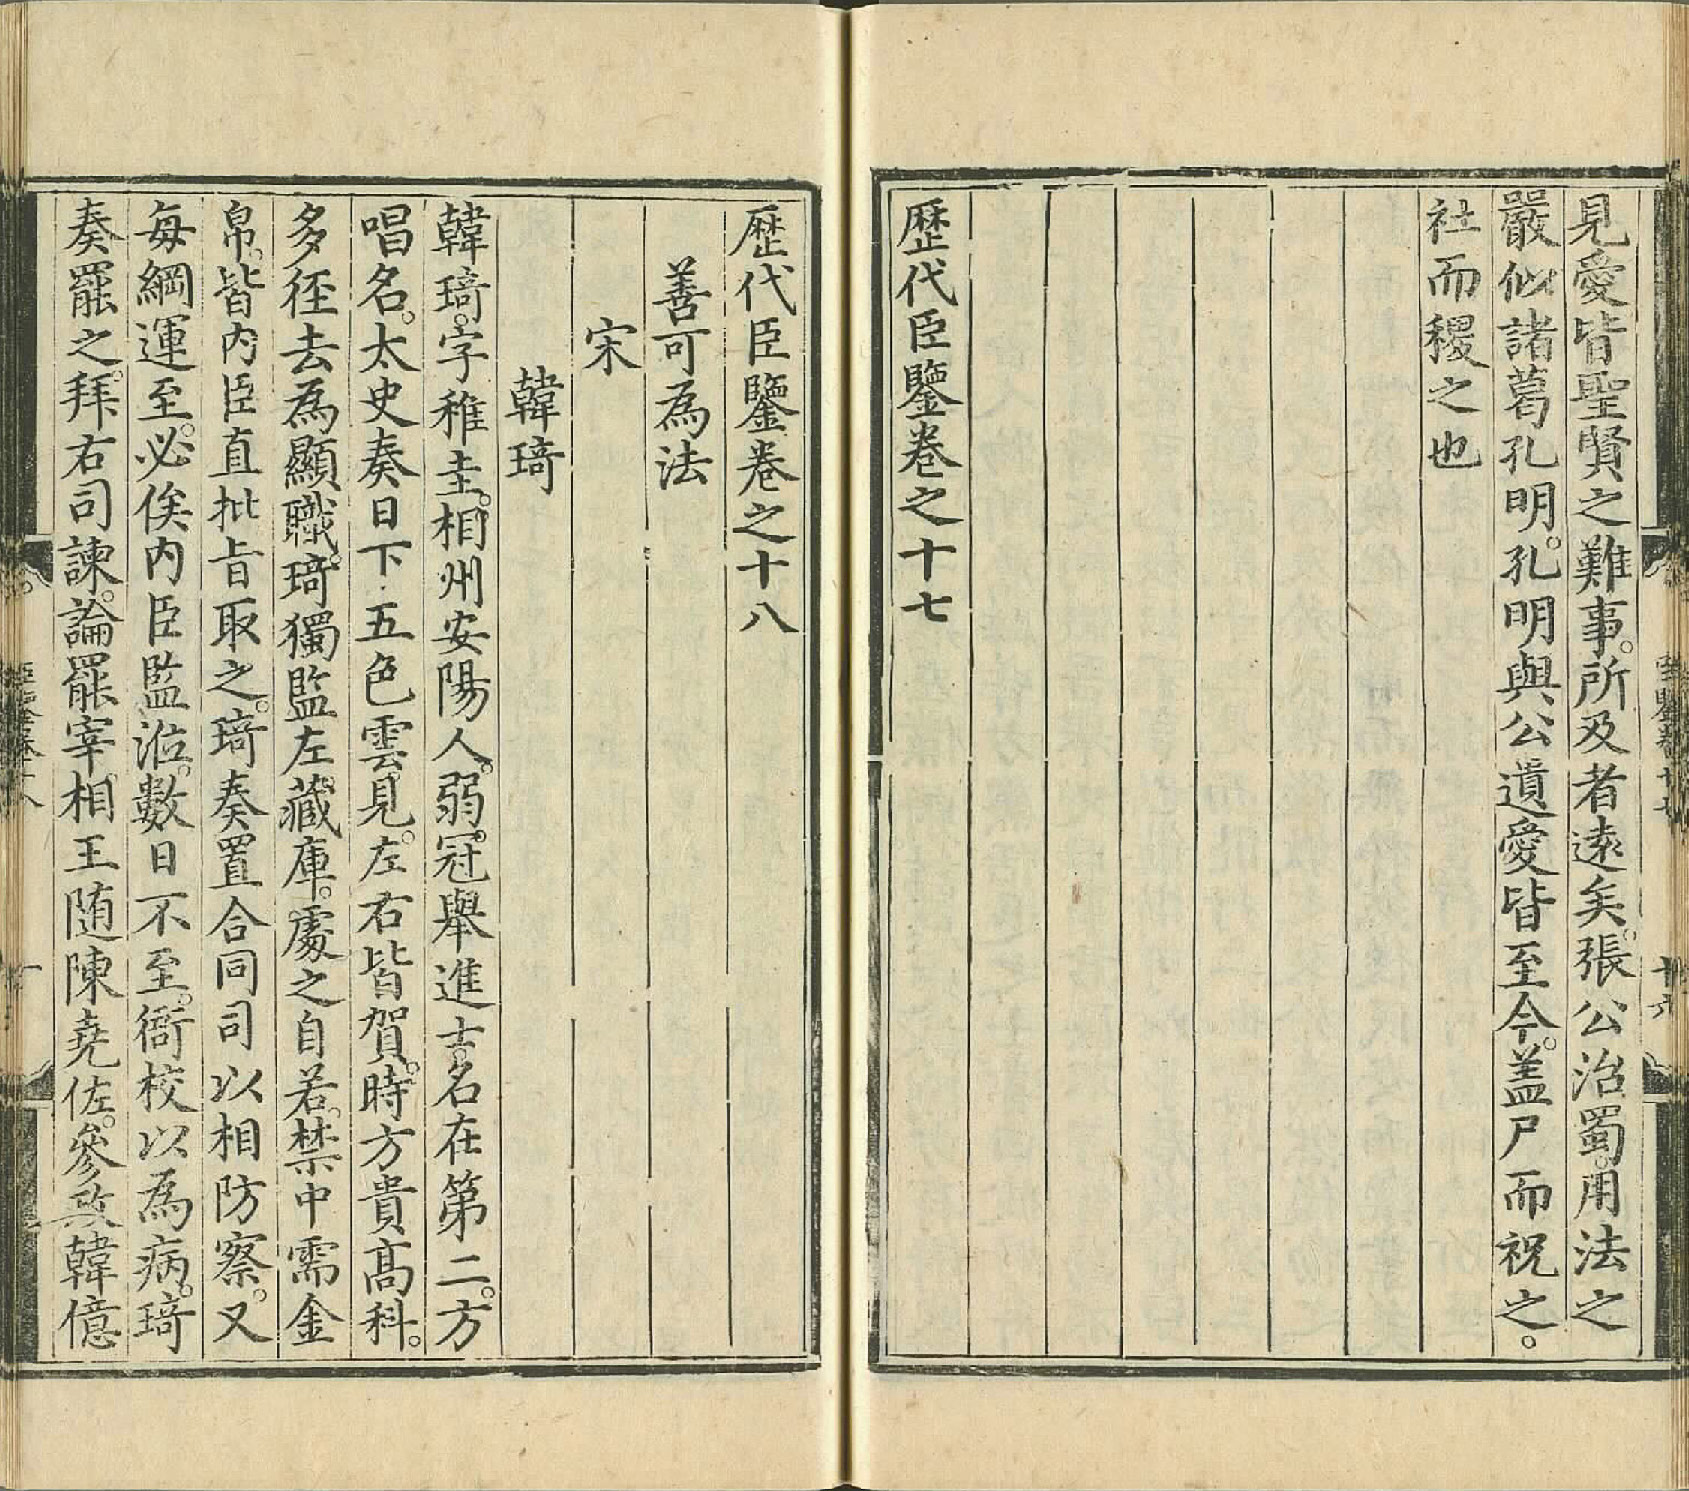 見愛皆聖賢之難事所及者遠矣張公治蜀用法之
嚴似諸葛孔明孔明與公遺愛皆至今盖尸而祝之
社而稷之也
歷代臣鑒卷之十七
歷代臣鑒卷之十八
善可為法
宋
韓琦
韓琦字稚圭相州安陽人弱冠舉進士名在第二方
唱名太史奏日下五色雲見左右皆賀時方貴髙科
多徑去為顯職琦獨監左藏庫處之自若禁中需金
帛皆内臣直批旨取之琦奏置合同司以相防察又
每綱運至必俟内臣監涖數日不至衙校以為病琦
奏罷之拜右司諫論罷宰相王随陳堯佐參政韓億